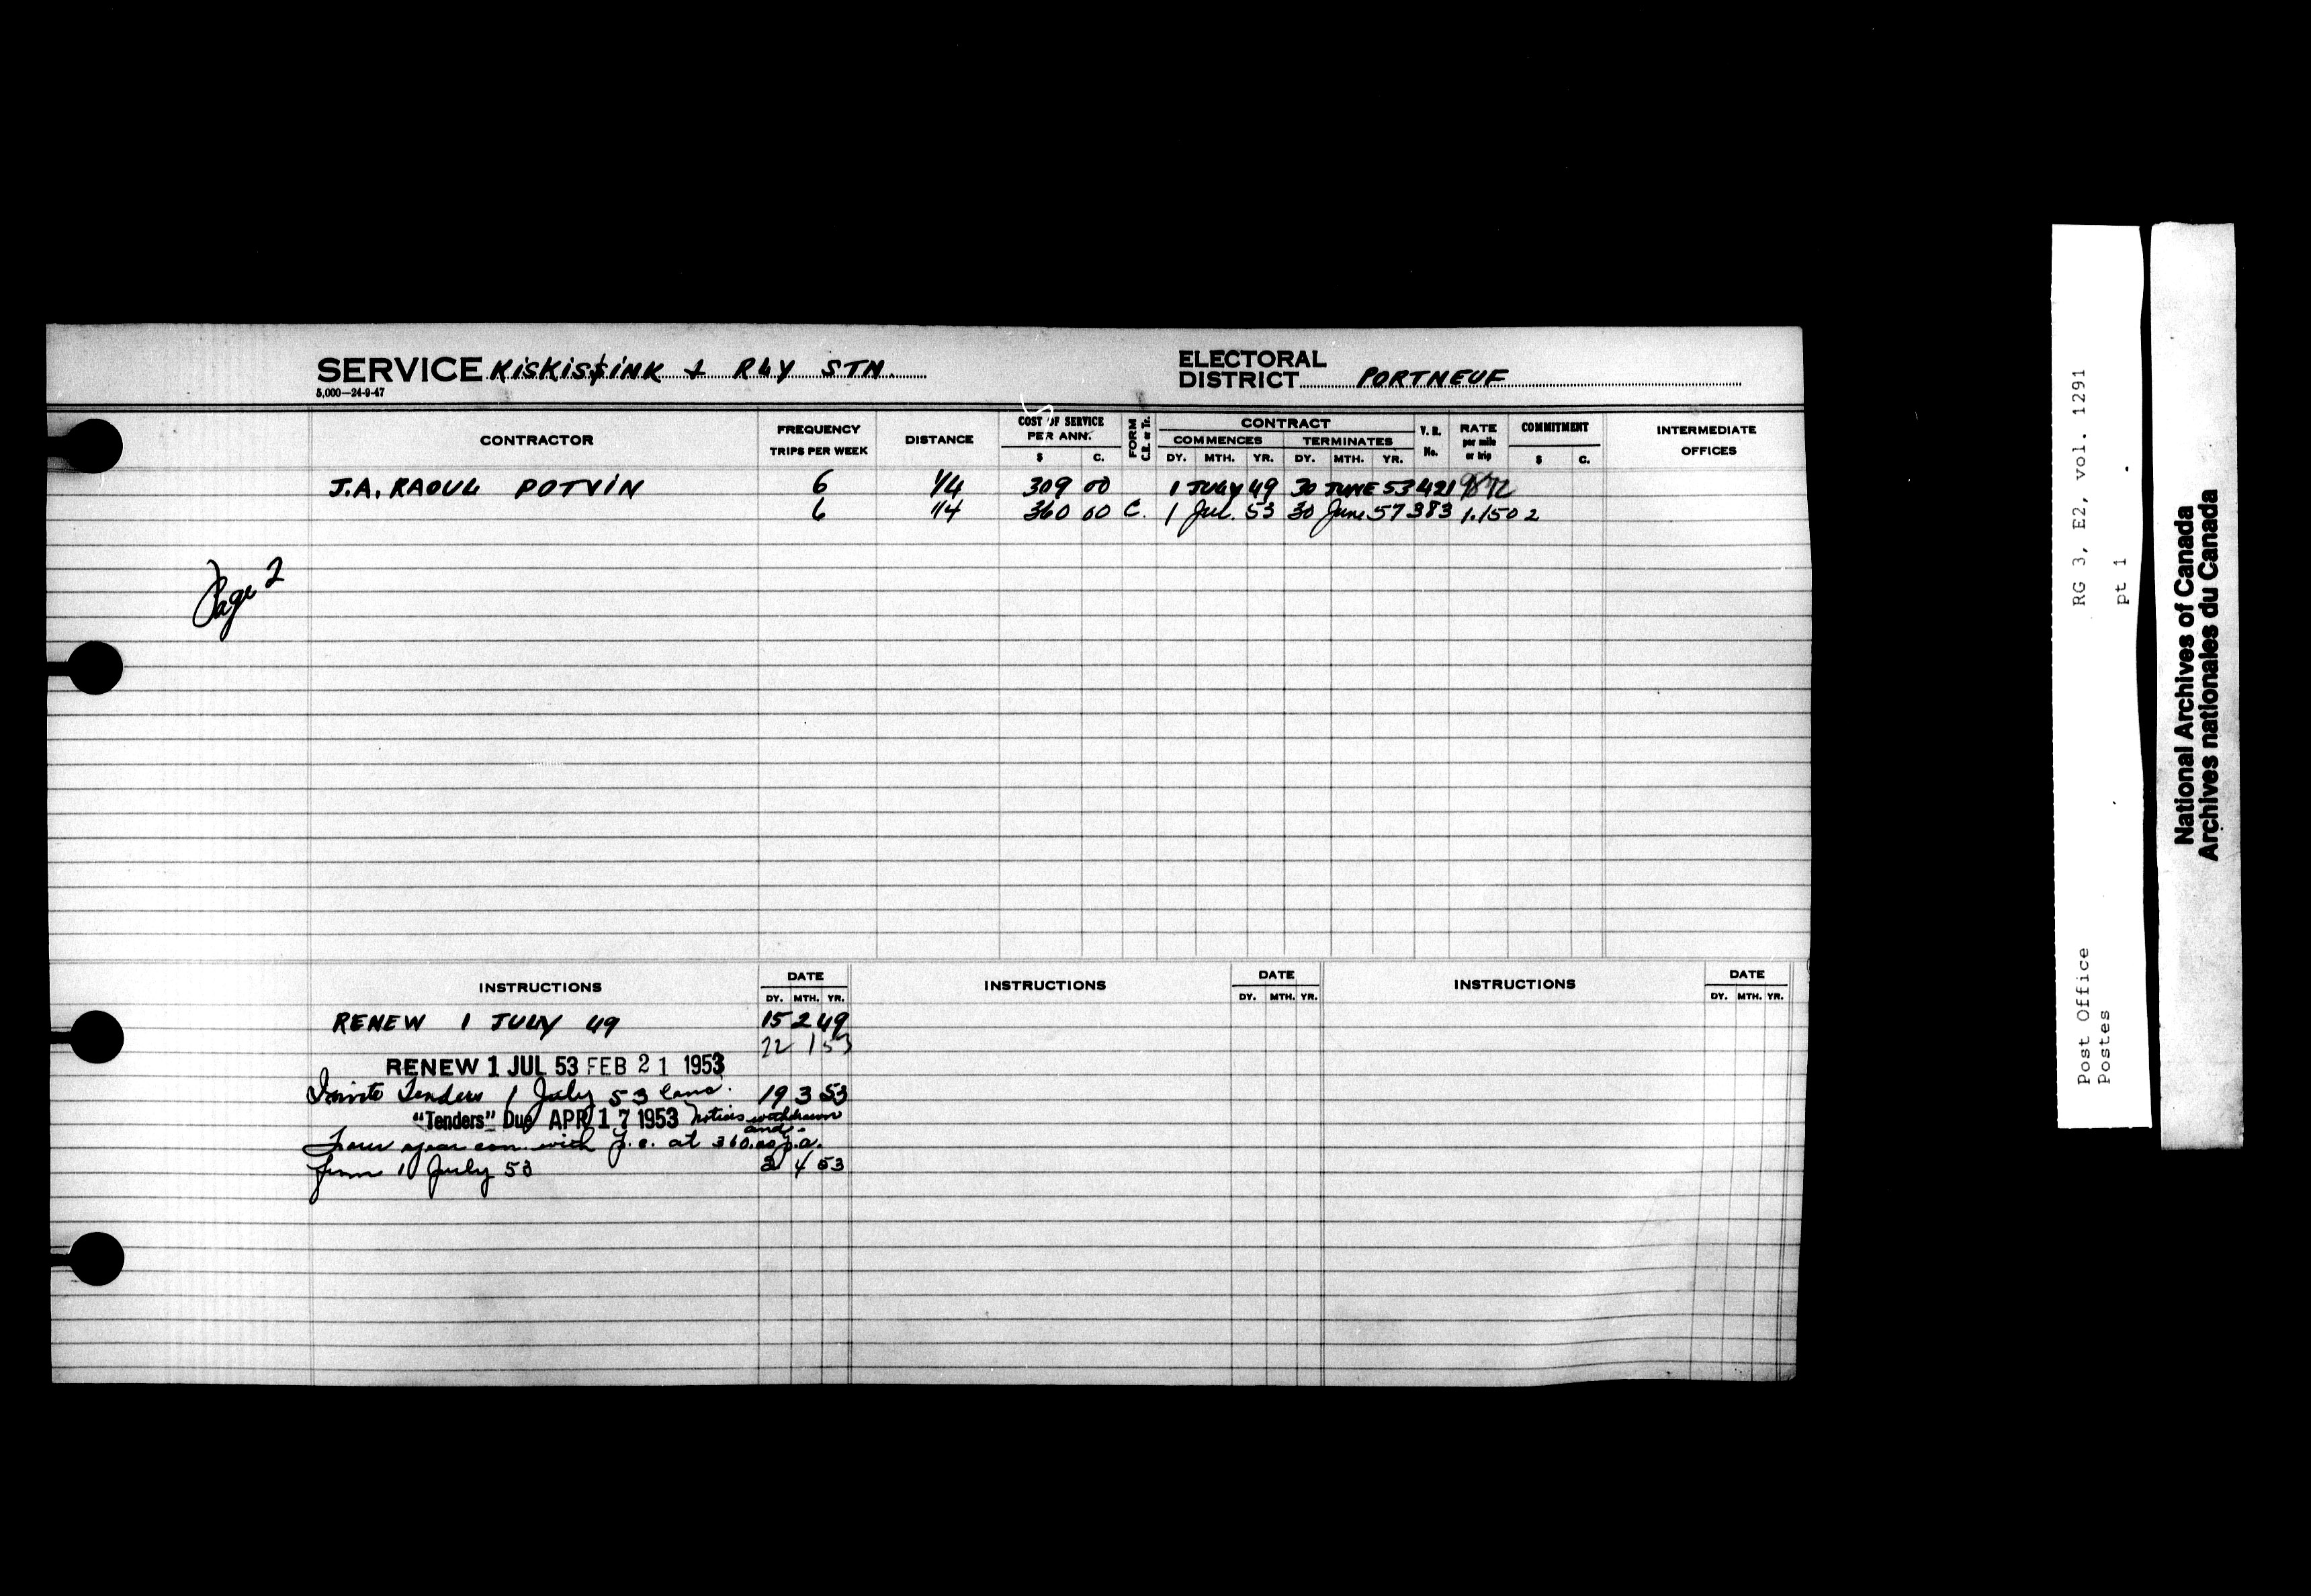 SERVICE KISKISSINK & RLY STN.
5,000—24-9-47
ELECTORAL
DISTRICT PORTNEUF
CONTRACTOR FREQUENCY TRIPS PER WEEK DISTANCE COST OF SERVICE PER ANN. $ C. FORM C.R. or Tr. CONTRACT COMMENCES DY. MTH. YR. TERMINATES DY. MTH. YR. V. R. No. RATE per mile or trip COMMITMENT $ C. INTERMEDIATE OFFICES
J.A. RAOUL POTVIN 6 1/4 309 00 1 JULY 49 30 JUNE 53 421 9872
6 1/4 360 00 C. 1 Jul. 53 30 June 57 383 1.1502
Page 2
INSTRUCTIONS DATE DY. MTH. YR. INSTRUCTIONS DATE DY. MTH. YR. INSTRUCTIONS DATE DY. MTH. YR.
RENEW 1 JULY 49 15 2 49
22 1 53
RENEW 1 JUL 53 FEB 21 1953
Invite Tenders 1 July 53 19 3 53
"Tenders" Due APR 17 1953 Notices withdrawn
and
Four year con. with p.c. at 360.00 p.a.
from 1 July 53 2 4 53
RG 3, E2, vol. 1291
pt 1
Post Office
Postes
National Archives of Canada
Archives nationales du Canada